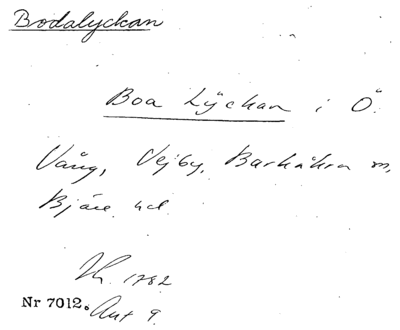 Bodalyckan
Boa Lÿckan i Ö.
Vång, Vejby, Barkåkra m,
Bjäre hd
Lh. 1782
Nr 7012. Akt 9.